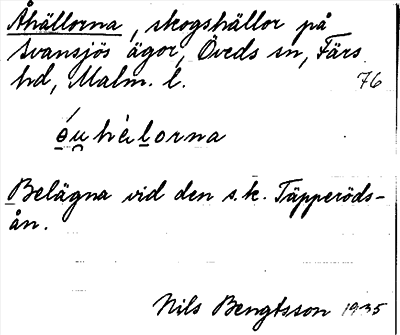 Åhällorna, skogshällor på
Svansjös ägor, Öveds sn, Färs
hd, Malm. l. 76
éu̯hèlorna
Belägna vid den s.k. Täpperöds-
ån.
Nils Bengtsson 1935